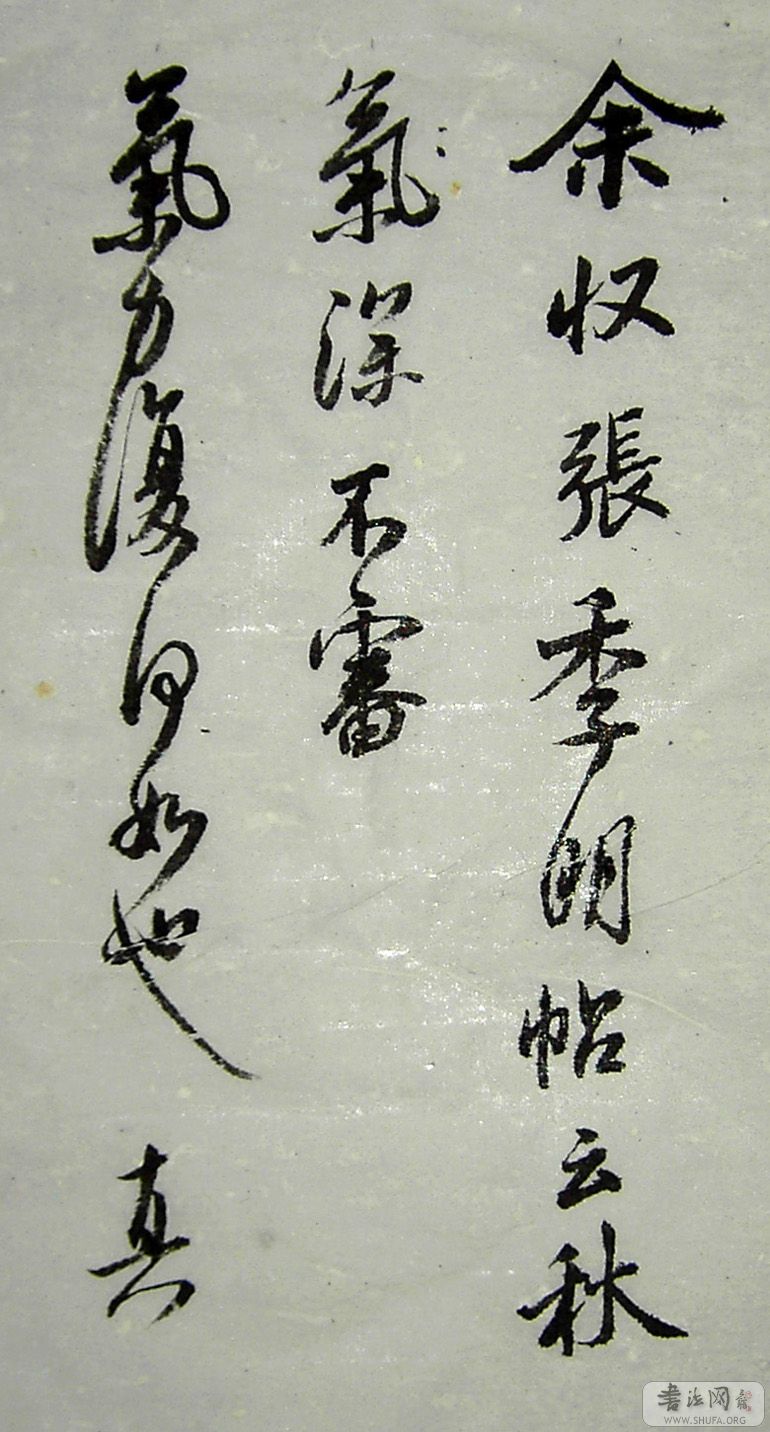 余収張季明帖云秋
氣深不審
氣力復何如也 真
書法网
WWW.SHUFA.ORG